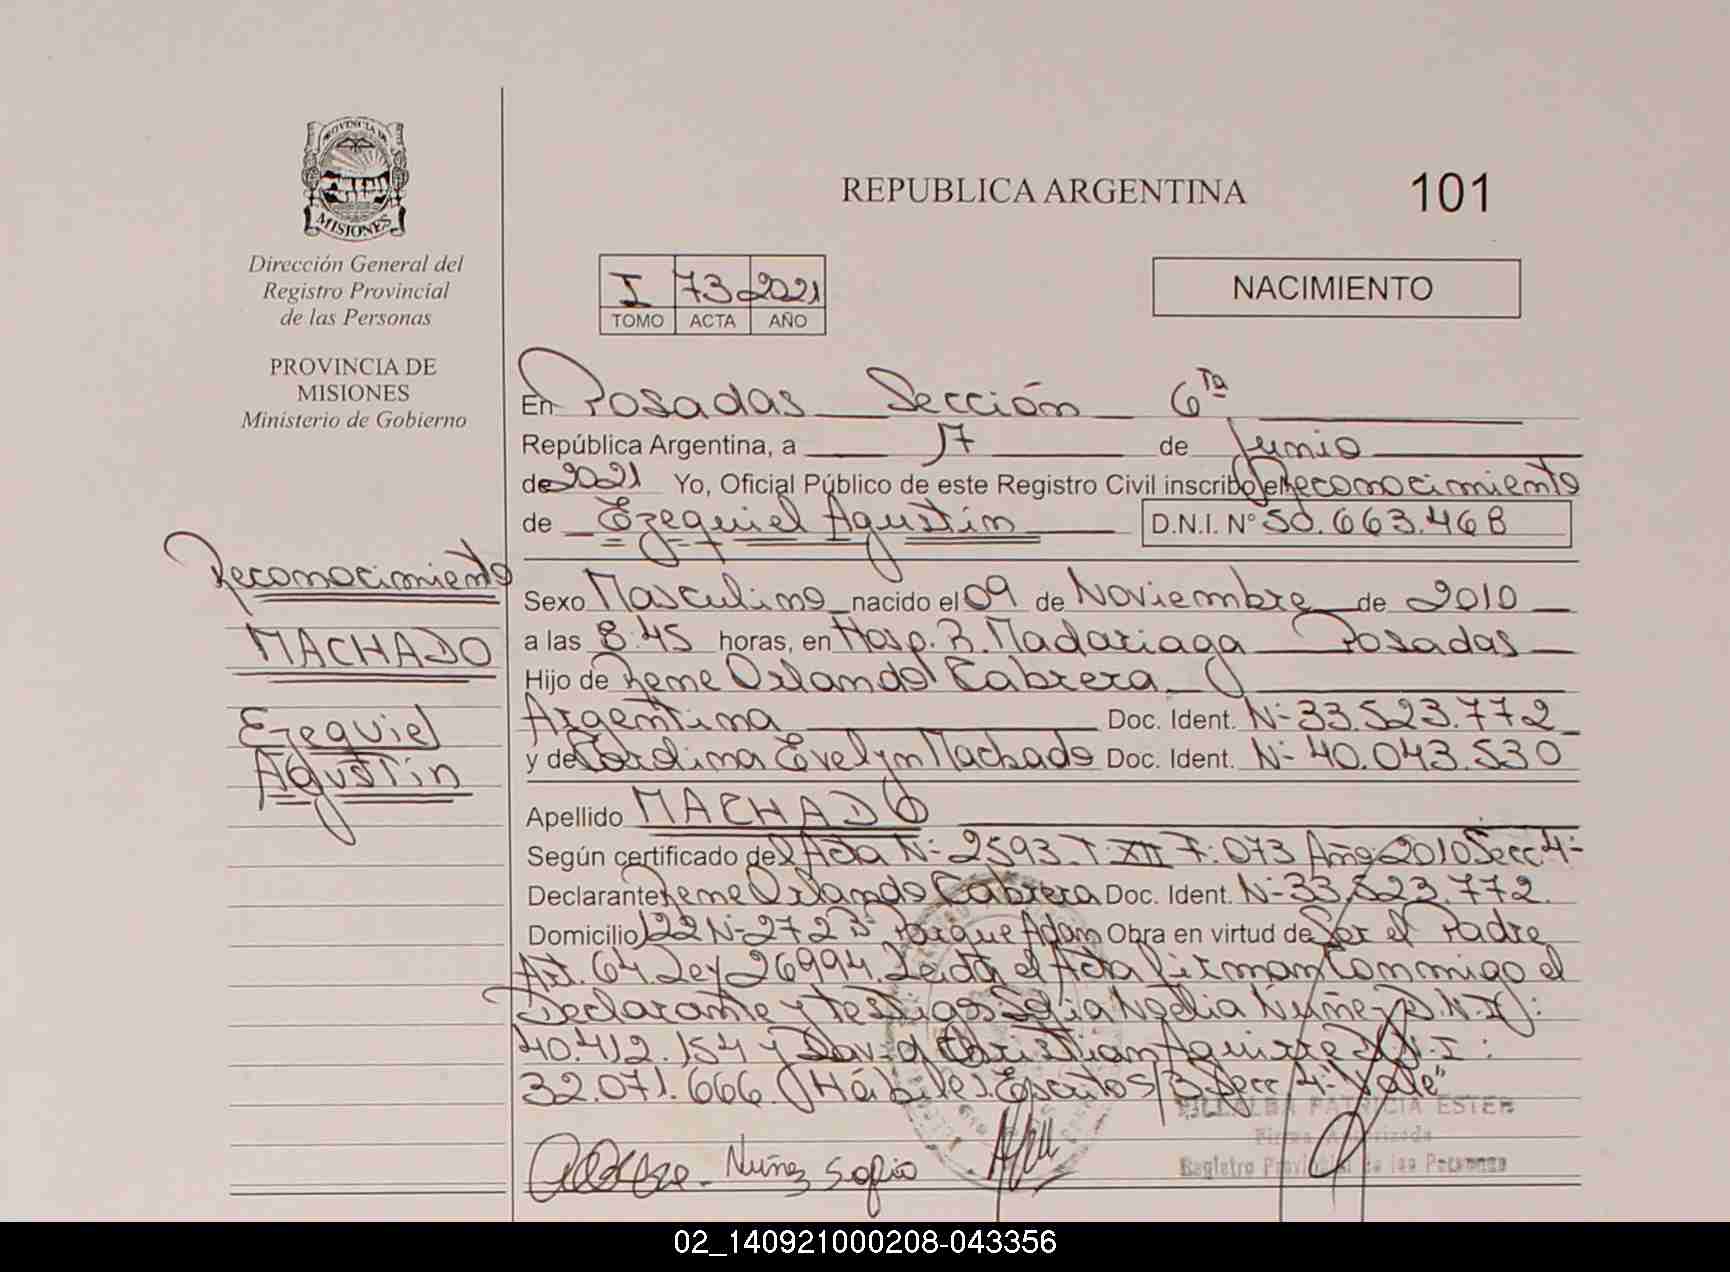 PROVINCIA DE
MISIONES
Dirección General del
Registro Provincial
de las Personas
PROVINCIA DE
MISIONES
Ministerio de Gobierno
Reconocimiento
MACHADO
Ezequiel
Agustín
REPUBLICA ARGENTINA 101
I 73 2021
TOMO ACTA AÑO
NACIMIENTO
En Posadas Sección 6ta
República Argentina, a 17 de Junio
de 2021 Yo, Oficial Público de este Registro Civil inscribo el Reconocimiento
de Ezequiel Agustín D.N.I. N° 50.663.468
Sexo Masculino nacido el 09 de Noviembre de 2010
a las 8:45 horas, en Hosp. R. Madariaga Posadas
Hijo de Rene Orlando Cabrera
Argentina Doc. Ident. N- 33.523.772
y de Carolina Evelyn Machado Doc. Ident. N- 40.043.530
Apellido MACHADO
Según certificado del Acta N- 2593 T XII F: 073 Año 2010 Secc 4-
Declarante Rene Orlando Cabrera Doc. Ident. N- 33.523.772.
Domicilio 122 N- 272 B- Parque Adam Obra en virtud de Ser el Padre
Art. 64 Ley 26994. Leída el Acta firman Conmigo el
Declarante y testigos: Sofia Noelia Nuñez D.N.I:
40.412.154 y David Christian Aguirre D.N.I:
32.071.666. Hábiles. Escritos /3 Secc 4- "Vale"
Nuñez Sofia
VILLALBA PATRICIA ESTER
Firma Autorizada
Registro Provincial de las Personas
02_140921000208-043356